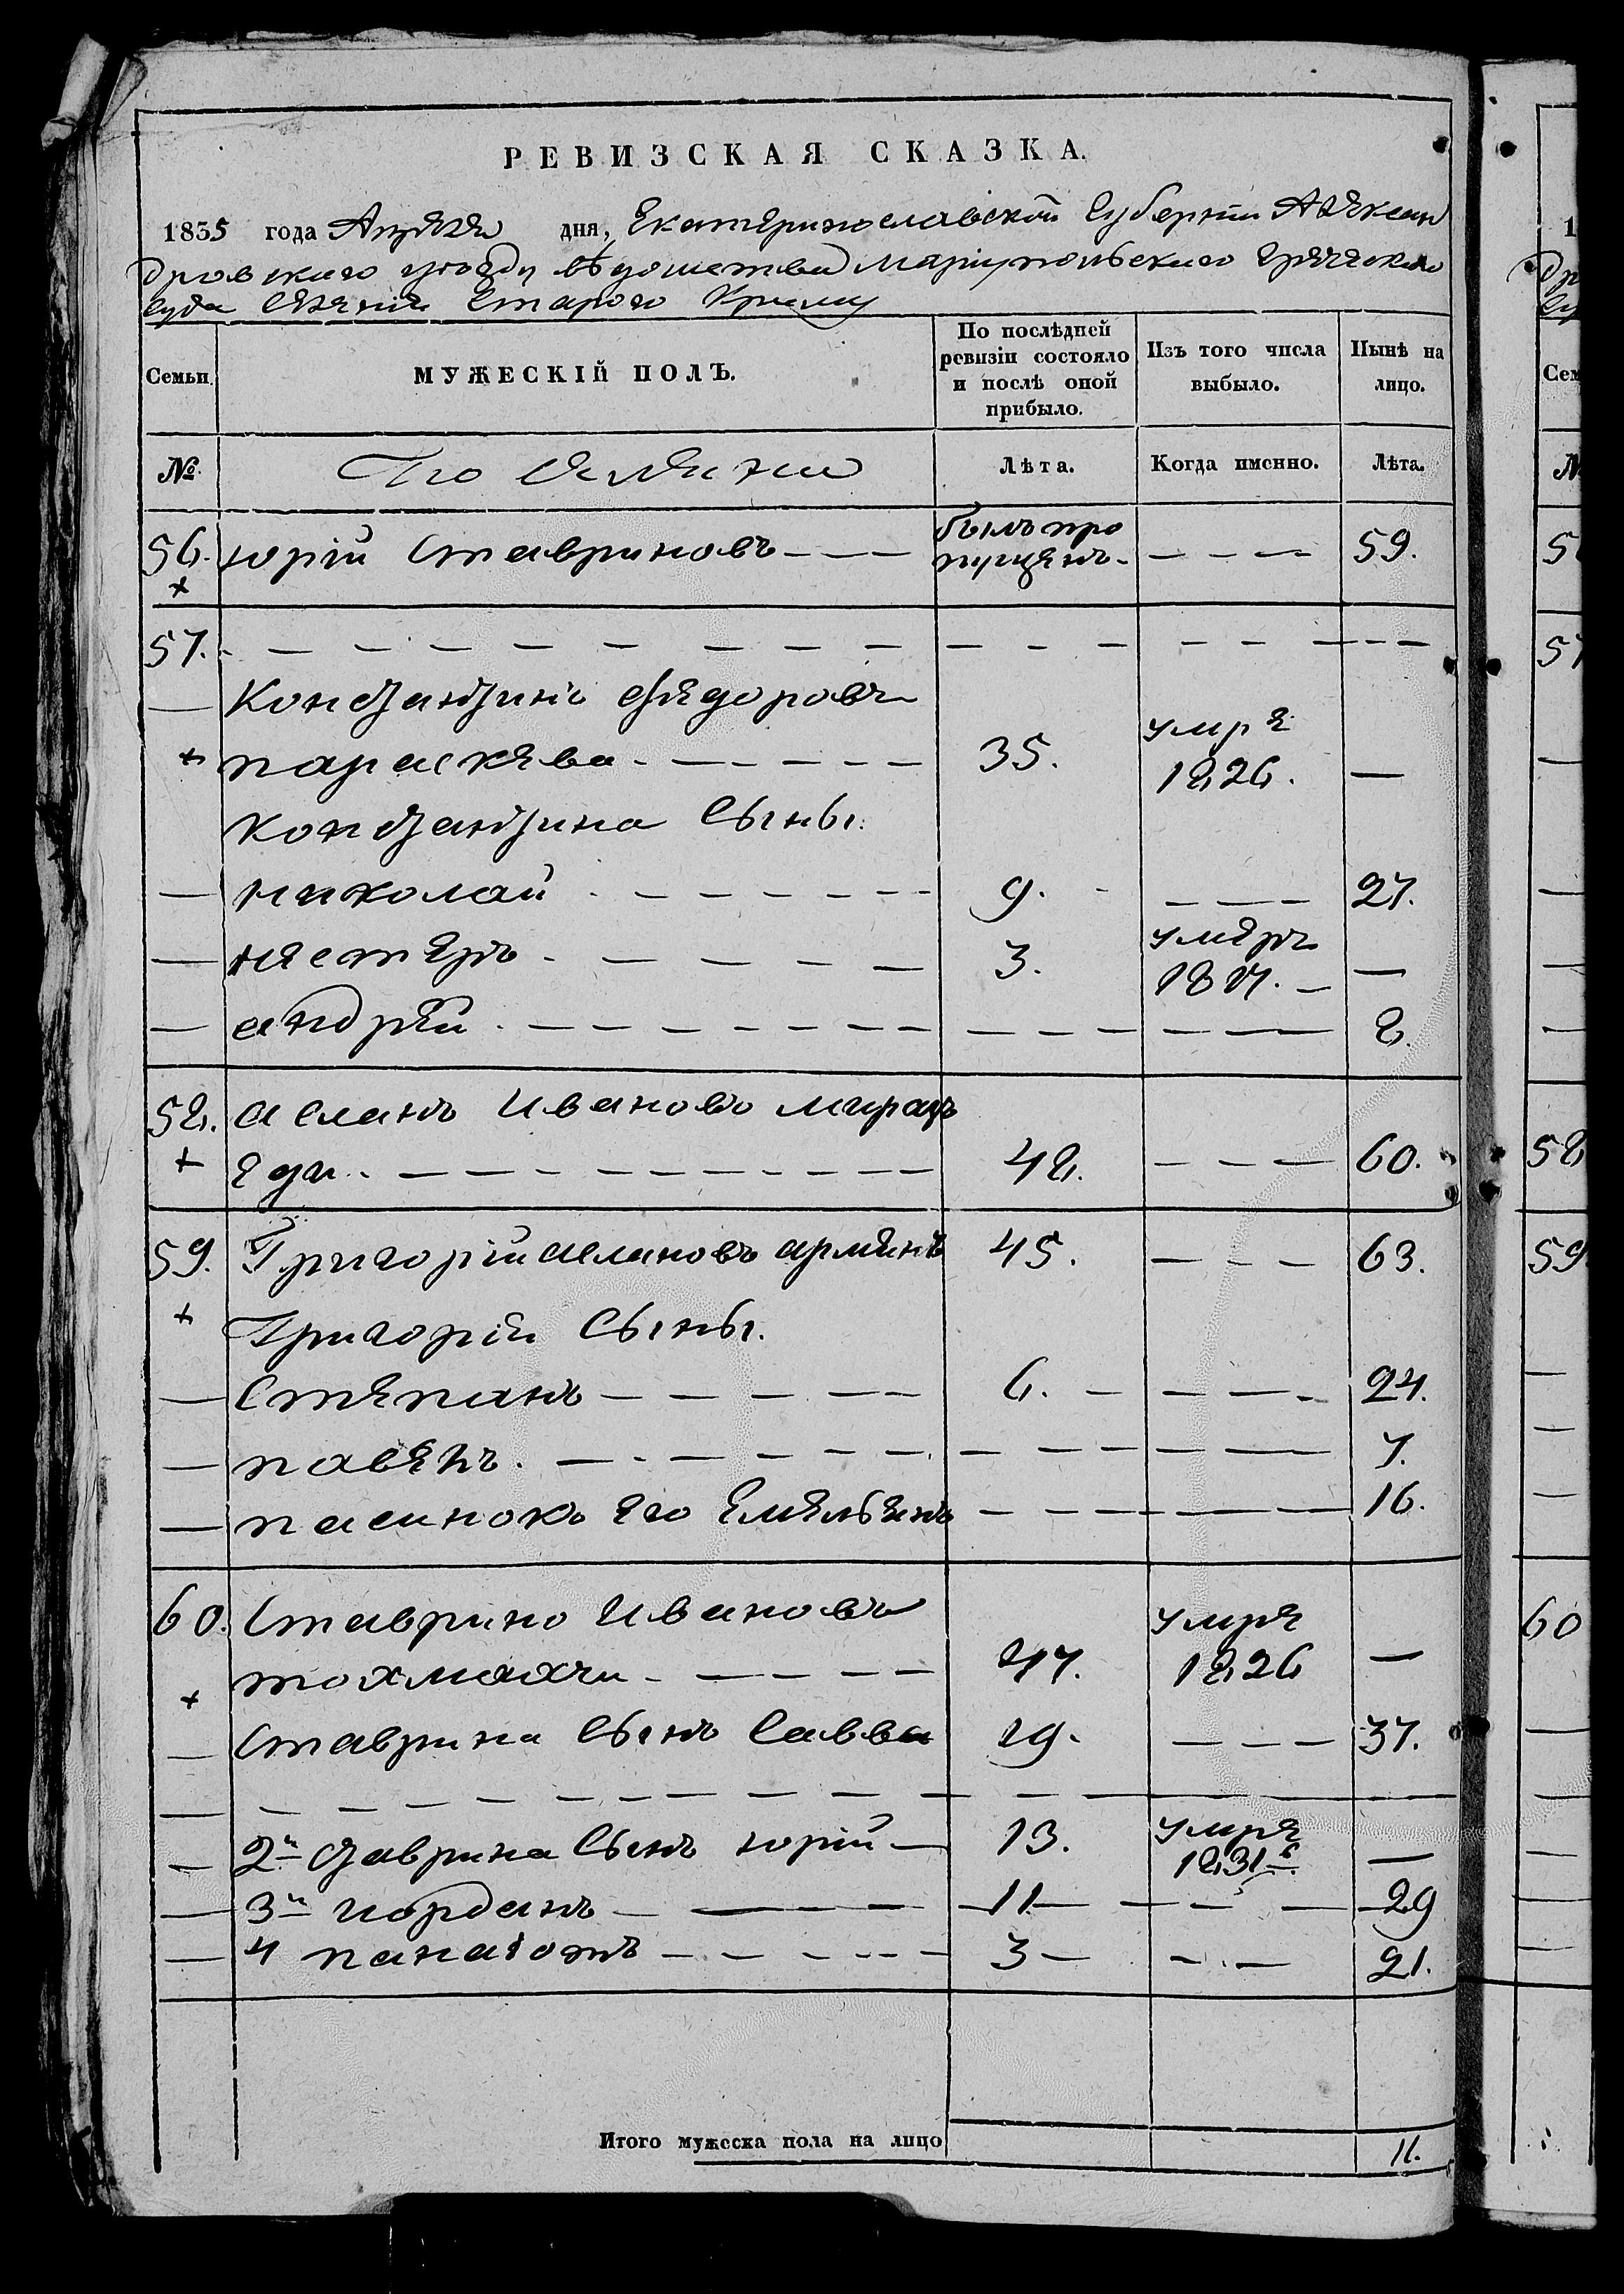 РЕВИЗСКАЯ СКАЗКА.
1835 года Апреля дня, Екатеринославской Губернии Алексан
дровского уезду вѣдомства Мариупольского греческого
суда селения Старого Крыму
Семьи. МУЖЕСКІЙ ПОЛЪ. По послѣдней ревизіи состояло и послѣ оной прибыло. Изъ того числа выбыло. Нынѣ на лицо.
№. Лѣта. Когда именно. Лѣта.
56. юрій Ставриновъ — — былъ про пущенъ - — — — 59.
57. — — — — — — — — —
Константинъ Федоровъ
параскева — — — — 35. умре 1826. —
Константина Сыны.
николай — — — — 9. — — — 27.
нестеръ — — — — 3. умеръ 1817. —
андрей — — — — — — — 8.
58. асланъ Ивановъ
48. — — — 60.
59. Григорій аслановъ 45. — — — 63.
Григорій Сыны.
Степанъ — — — — 6. — — — 24.
павелъ — — — — — — 7.
пасинокъ его Емельянъ — — — — 16.
60. Ставрино Ивановъ
тохмахчи — — — 47. умре 1826 —
Ставрина Сынъ Савва 19. — — — 37.
— — — — — — — — —
2й Ставрина Сынъ юрій — 13. умре 1831г. —
3й иорданъ — — — 11 — — — 29
4 панаіотъ — — — 3 — — — 21.
Итого мужеска пола на лицо 11.